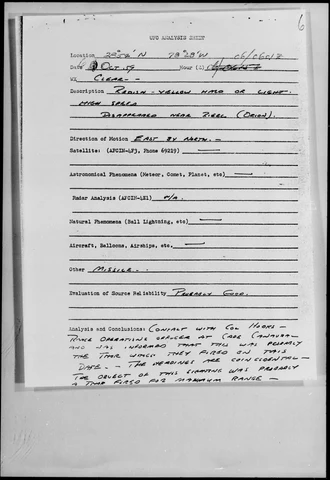 6
UFO ANALYSIS SHEET
Location 28° N 78° 28' W 06/0601Z
Date 6 Oct 59 Hour (Z)
WX CLEAR--
Description REDISH-YELLOW HALO OF LIGHT.
HIGH SPEED
DISAPPEARED NEAR RIGEL (ORION).
Direction of Motion EAST BY NORTH.-
Satellite: (AFCIN-4F3, Phone 69219)
Astronomical Phenomena (Meteor, Comet, Planet, etc)
Radar Analysis (AFCIN-4E1) N/A.
Natural Phenomena (Ball Lightning, etc)
Aircraft, Balloons, Airships, etc.
Other MISSILE.-
Evaluation of Source Reliability PROBABLY GOOD.
Analysis and Conclusions: CONTACT WITH COL HOOKS -
RANGE OPERATIONS OFFICER AT CAPE CANAVERAL
AND WAS INFORMED THAT THIS WAS PROBABLY
THE THOR WHICH THEY FIRED ON THIS
DATE. - THE HEADINGS ARE COINCIDENTAL -
THE OBJECT OF THIS SIGHTING WAS PROBABLY
A THOR FIRED FOR MAXIMUM RANGE -